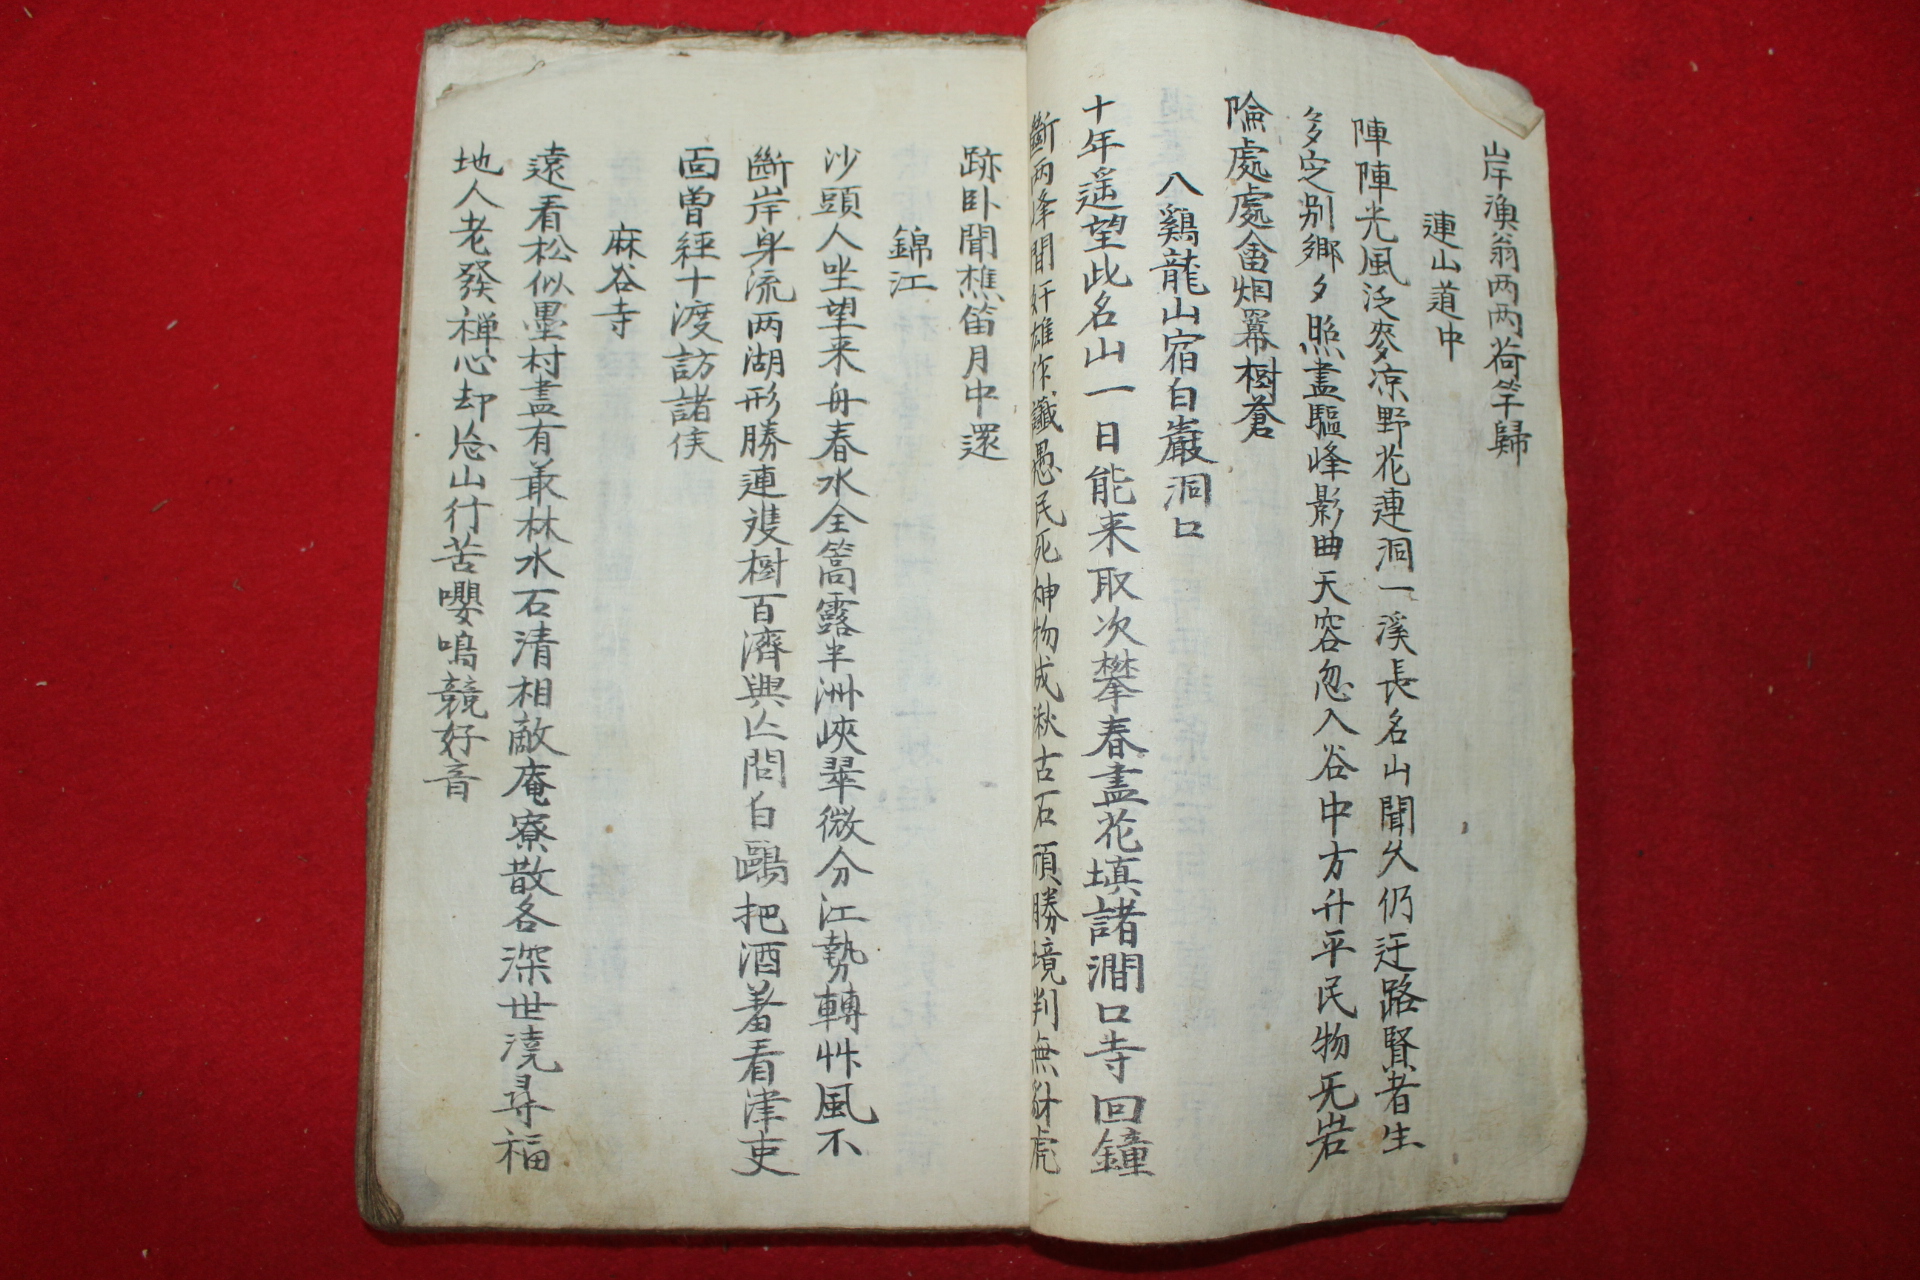 岸漁翁两两荷竿歸
連山道中
陣陣光風泛麥凉野花蓮洞一溪長名山聞久仍迂路賢者生
多定别鄉夕照盡驅峰影曲天容忽入谷中方升平民物无岩
險處處畬烟羃樹蒼
八鷄龍山宿白巖洞口
十年遥望此名山一日能来取次攀春盡花填諸澗口寺回鐘
斷两峰間奸雄作讖愚民死神物成湫古石頑勝境判無豺虎
跡卧聞樵笛月中還
錦江
沙頭人坐望来舟春水全篙露半洲峽翠微分江勢轉艸風不
斷岸身流两湖形勝連雙樹百濟興亾問白鷗把酒着看津吏
面曾經十渡訪諸侯
麻谷寺
遠看松似墨村盡有叢林水石清相敵庵寮散各深世澆尋福
地人老發禅心却忘山行苦嚶鳴競好音